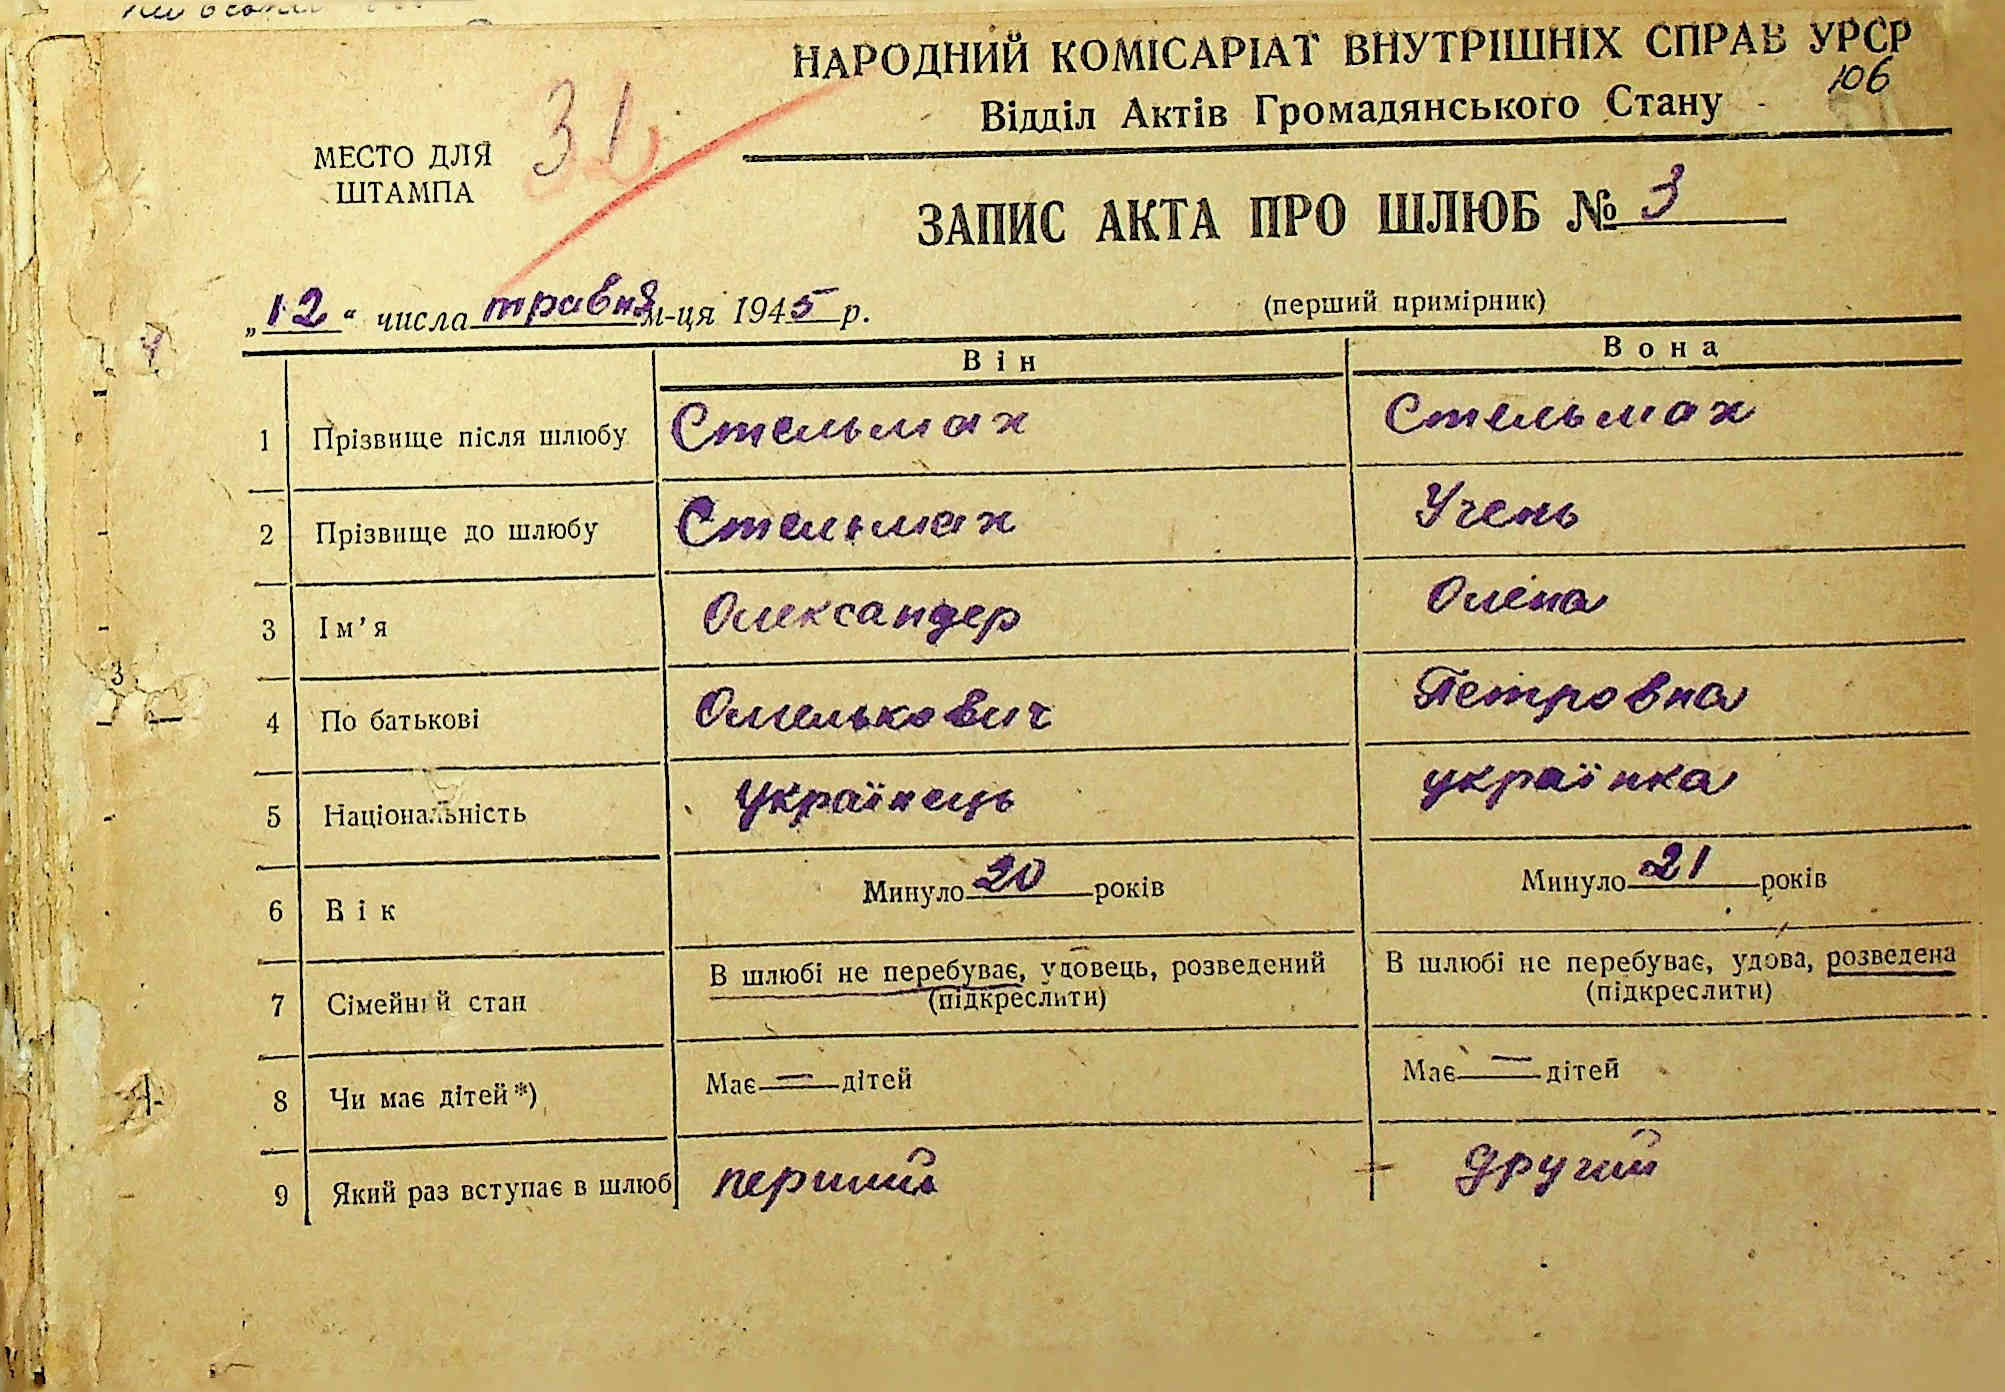 НАРОДНИЙ КОМІСАРІАТ ВНУТРІШНІХ СПРАВ УРСР
106
Відділ Актів Громадянського Стану
31
МЕСТО ДЛЯ
ШТАМПА
ЗАПИС АКТА ПРО ШЛЮБ № 3
„12“ числа травня м-ця 1945 р.
(перший примірник)
Він Вона
1 Прізвище після шлюбу Стельмах Стельмах
2 Прізвище до шлюбу Стельмах Учень
3 Ім'я Олександер Олена
4 По батькові Омелькович Петровна
5 Національність Українець українка
6 Вік Минуло 20 років Минуло 21 років
7 Сімейний стан В шлюбі не перебуває, удовець, розведений В шлюбі не перебуває, удова, розведена
(підкреслити) (підкреслити)
8 Чи має дітей*) Має — дітей Має — дітей
9 Який раз вступає в шлюб перший другий